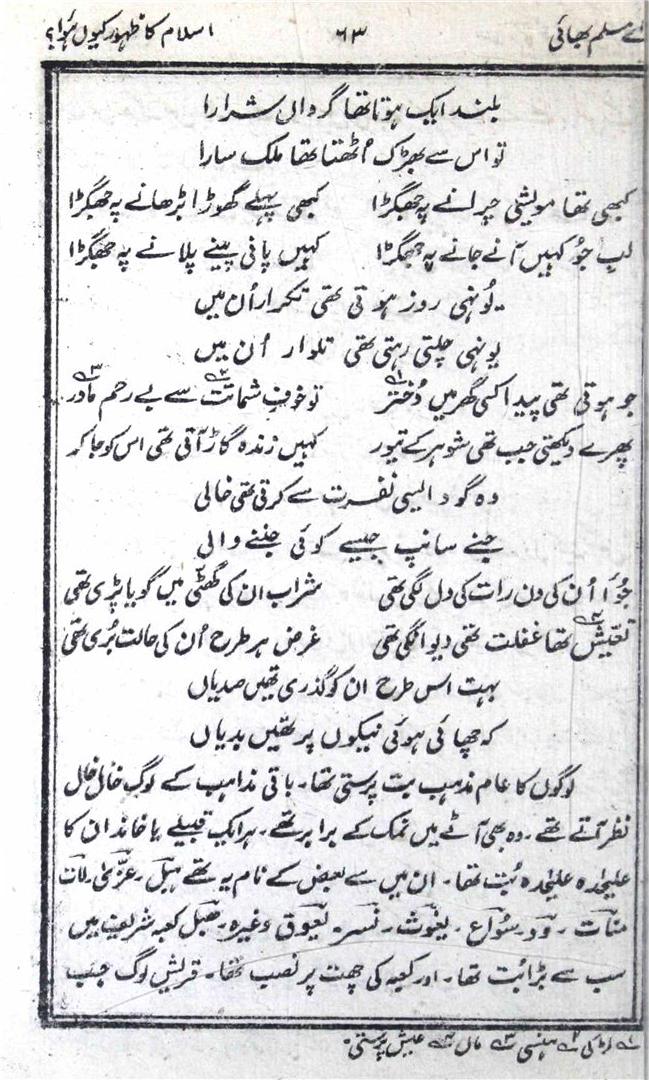 اے مسلم بھائی ۶۳ اسلام کا ظہور کیوں ہؤا؟
بلند ایک ہوتا تھا گر واں شرارا
تو اس سے بھڑک اُٹھتا تھا ملک سارا
کبھی تھا مویشی چرانے پہ جھگڑا کبھی پہلے گھوڑا بڑھانے پہ جھگڑا
لبِ جُو کہیں آنے جانے پہ جھگڑا کہیں پانی پینے پلانے پہ جھگڑا
یُونہی روز ہوتی تھی تکرار اُن میں
یونہی چلتی رہتی تھی تلوار اُن میں
جو ہوتی تھی پیدا کسی گھر میں دُختر۱ تو خوفِ شماتت۲ سے بے رحم مادر۳
پھرے دیکھتی جب تھی شوہر کے تیور کہیں زندہ گاڑ آتی تھی اس کو جا کر
وہ گود ایسی نفرت سے کرتی تھی خالی
جنے سانپ جیسے کوئی جننے والی
جُوٗا اُن کی دن رات کی دل لگی تھی شراب ان کی گھٹی میں گویا پڑی تھی
تعیّش۴ تھا غفلت تھی دیوانگی تھی غرض ہر طرح اُن کی حالت بُری تھی
بہت اس طرح ان کو گذری تھیں صدیاں
کہ چھائی ہوئی نیکوں پر تھیں بدیاں
لوگوں کا عام مذہب بت پرستی تھا۔ باقی مذاہب کے لوگ خال خال
نظر آتے تھے۔ وہ بھی آٹے میں نمک کے برابر تھے۔ ہر ایک قبیلے یا خاندان کا
علیحٰدہ علیحٰدہ بُت تھا۔ ان میں سے بعض کے نام یہ تھے ہبل۔ عزّیٰ۔ لات
منات۔ ود۔ سُواع۔ یغوث۔ نسر۔ یعوق وغیرہ۔ ھبل کعبہ شریف میں
سب سے بڑا بُت تھا۔ اور کعبہ کی چھت پر نصب تھا۔ قریش لوگ جب
۱ لڑکی ۲ ہنسی ۳ ماں ۴ عیش پرستی۔